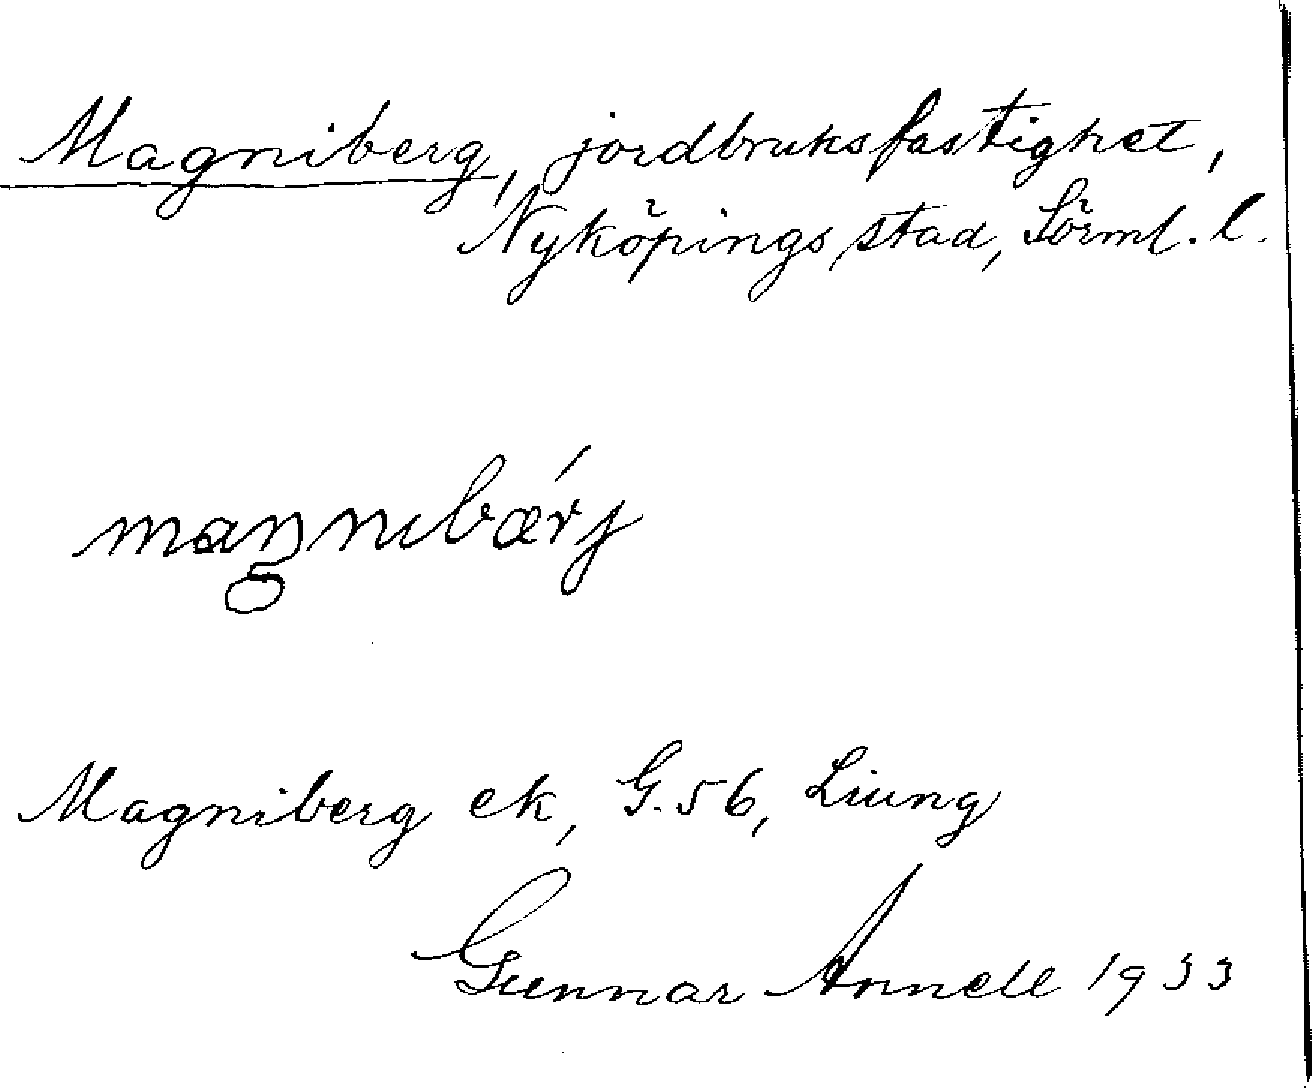 Magniberg, jordbruksfastighet,
Nyköpings stad, Sörml. l.
maŋnibærj
Magniberg ek, G. 56, Liung
Gunnar Annell 1933